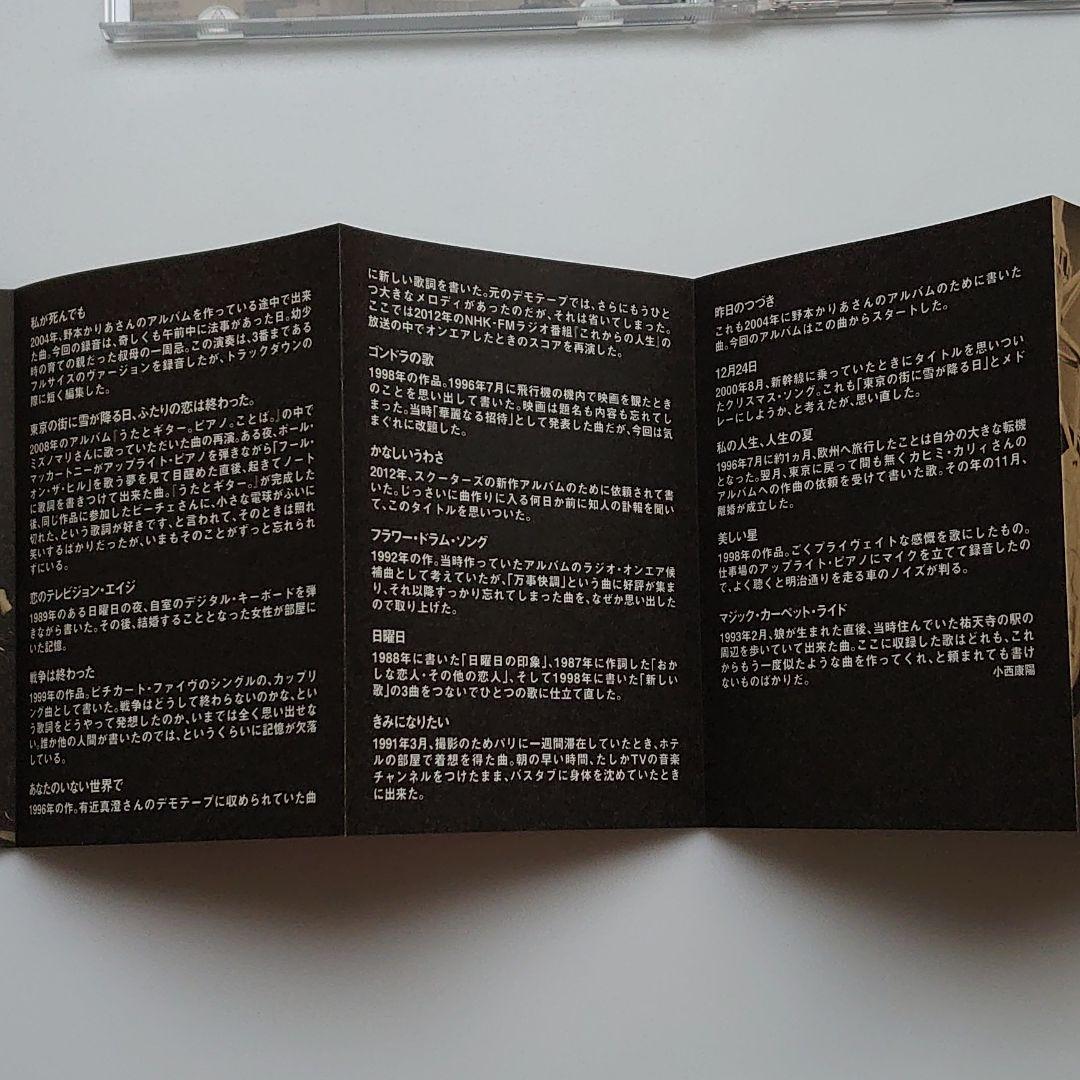 私が死んでも
2004年、野本かりあさんのアルバムを作っている途中で出来
た曲。今回の録音は、奇しくも午前中に法事があった日。幼少
時の育ての親だった叔母の一周忌。この演奏は、3番まである
フルサイズのヴァージョンを録音したが、トラックダウンの
際に短く編集した。
東京の街に雪が降る日、ふたりの恋は終わった。
2008年のアルバム『うたとギター。ピアノ。ことば。』の中で
ミズノマリさんに歌っていただいた曲の再演。ある夜、ポール・
マッカートニーがアップライト・ピアノを弾きながら「フール・
オン・ザ・ヒル」を歌う夢を見て目醒めた直後、起きてノート
に歌詞を書きつけて出来た曲。『うたとギター。』が完成した
後、同じ作品に参加したビーチェさんに、小さな電球がふいに
切れた、という歌詞が好きです、と言われて、そのときは照れ
笑いするばかりだったが、いまもそのことがずっと忘れられ
ずにいる。
恋のテレビジョン・エイジ
1989年のある日曜日の夜、自室のデジタル・キーボードを弾
きながら書いた。その後、結婚することとなった女性が部屋に
いた記憶。
戦争は終わった
1999年の作品。ピチカート・ファイヴのシングルの、カップリ
ング曲として書いた。戦争はどうして終わらないのかな、とい
う歌詞をどうやって発想したのか、いまでは全く思い出せな
い。誰か他の人間が書いたのでは、というくらいに記憶が欠落
している。
あなたのいない世界で
1996年の作。有近真澄さんのデモテープに収められていた曲
に新しい歌詞を書いた。元のデモテープでは、さらにもうひと
つ大きなメロディがあったのだが、それは省いてしまった。
ここでは2012年のNHK-FMラジオ番組『これからの人生』の
放送の中でオンエアしたときのスコアを再演した。
ゴンドラの歌
1998年の作品。1996年7月に飛行機の機内で映画を観たとき
のことを思い出して書いた。映画は題名も内容も忘れてし
まった。当時「華麗なる招待」として発表した曲だが、今回は気
まぐれに改題した。
かなしいうわさ
2012年、スクーターズの新作アルバムのために依頼されて書
いた。じっさいに曲作りに入る何日か前に知人の訃報を聞い
て、このタイトルを思いついた。
フラワー・ドラム・ソング
1992年の作。当時作っていたアルバムのラジオ・オンエア候
補曲として考えていたが、「万事快調」という曲に好評が集ま
り、それ以降すっかり忘れてしまった曲を、なぜか思い出した
ので取り上げた。
日曜日
1988年に書いた「日曜日の印象」、1987年に作詞した「おか
しな恋人・その他の恋人」、そして1998年に書いた「新しい
歌」の3曲をつないでひとつの歌に仕立て直した。
きみになりたい
1991年3月、撮影のためパリに一週間滞在していたとき、ホテ
ルの部屋で着想を得た曲。朝の早い時間、たしかTVの音楽
チャンネルをつけたまま、バスタブに身体を沈めていたとき
に出来た。
昨日のつづき
これも2004年に野本かりあさんのアルバムのために書いた
曲。今回のアルバムはこの曲からスタートした。
12月24日
2000年8月、新幹線に乗っていたときにタイトルを思いつい
たクリスマス・ソング。これも「東京の街に雪が降る日」とメド
レーにしようか、と考えたが、思い直した。
私の人生、人生の夏
1996年7月に約1ヵ月、欧州へ旅行したことは自分の大きな転機
となった。翌月、東京に戻って間も無くカヒミ・カリィさんの
アルバムへの作曲の依頼を受けて書いた歌。その年の11月、
離婚が成立した。
美しい星
1998年の作品。ごくプライヴェイトな感慨を歌にしたもの。
仕事場のアップライト・ピアノにマイクを立てて録音したの
で、よく聴くと明治通りを走る車のノイズが判る。
マジック・カーペット・ライド
1993年2月、娘が生まれた直後、当時住んでいた祐天寺の駅の
周辺を歩いていて出来た曲。ここに収録した歌はどれも、これ
からもう一度似たような曲を作ってくれ、と頼まれても書け
ないものばかりだ。
小西康陽